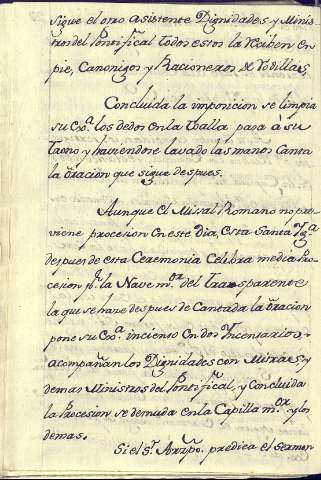 sigue el otro asistente Dignidades y Minis
tros del Pontifical todos estos la reciben en
pie, Canonigos y Racioneros de rodillas.
Concluida la imposicion se limpia
su Exª. los dedos en la toalla pasa à su
trono y haviendose lavado las manos canta
la oracion que sigue despues.
Aunque el Missal Romano no pre
viene procesion en este dia, esta Santa Ygª
despues de esta Ceremonia Celebra media Pro
cesion pr. la Nave mor. del Transparente
la que se hace despues de Cantada la oracion
pone su Exª. incienso en dos Yncensarios,
acompañan los Dignidades con Mitras, y
demas Ministros del Pontifical, y concluida
la Procesion se demuda en la Capilla mor. y los
demas.
Si el Sr. Arzpo. predica el sermon